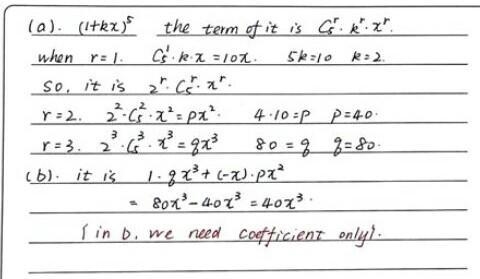 (a). (1+kx)⁵ the term of it is C₅ʳ·kʳ·xʳ.
when r=1. C₅¹·k·x=10x. 5k=10 k=2.
so, it is 2ʳ·C₅ʳ·xʳ.
r=2. 2²·C₅²·x²=px². 4·10=p p=40.
r=3. 2³·C₅³·x³=qx³ 80=q q=80.
(b). it is 1·qx³+(-x)·px²
= 80x³-40x³=40x³.
{in b, we need coefficient only}.